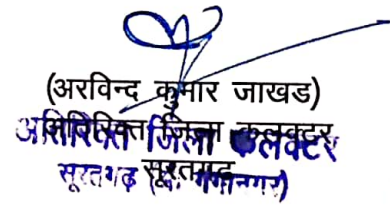 (अरविन्द कुमार जाखड)
अतिरिक्त जिला कलक्टर
अतिरिक्त जिला कलक्टर
सूरतगढ़
सूरतगढ़ (श्री गंगानगर)